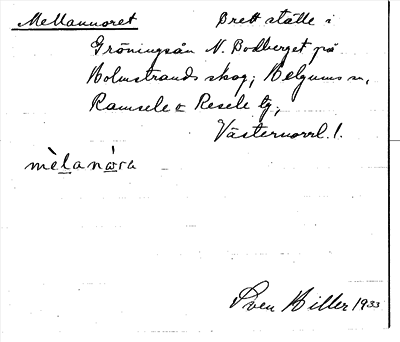 Mellannoret Brett ställe i
Gröningsån N. Bodberget på
Holmstrands skog; Helgums sn,
Ramsele o Resele tg,
Västernorrl. l.
mèlanára
Sven Hiller 1933